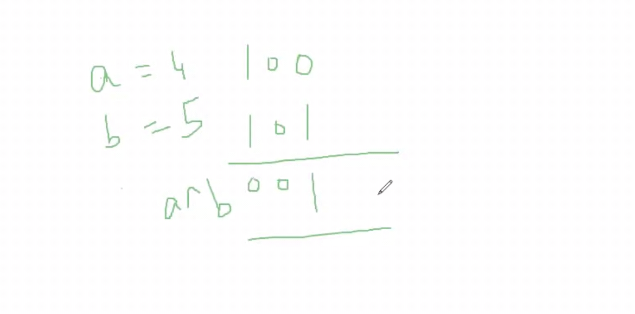 a = 4 100
b = 5 101
a^b 001